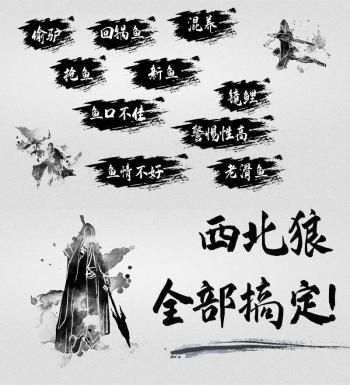 偷驴 回锅鱼 混养
抢鱼 新鱼 镜鲤
鱼口不佳 警惕性高
鱼情不好 老滑鱼
西北狼
全部搞定!